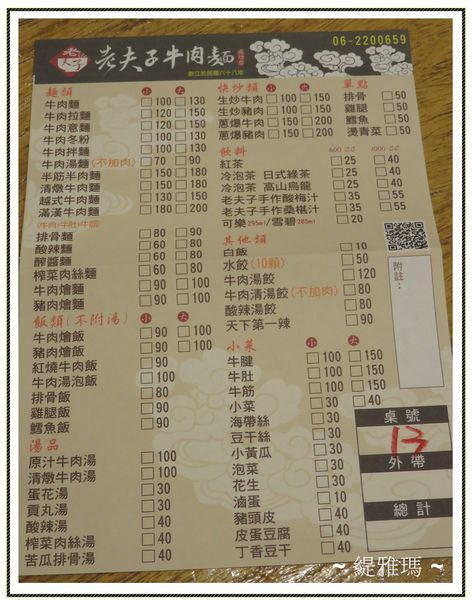 06-2200659
老夫子牛肉麵
創立於民國六十八年
麵類 小 大
牛肉麵 100 130
牛肉拉麵 120 150
牛肉意麵 120 150
牛肉冬粉 100 130
牛肉拌麵 100 130
牛肉湯麵(不加肉) 70 90
半筋半肉麵 150 180
清燉牛肉麵 150 180
越式牛肉麵 130 160
滿漢牛肉麵 180 200
(牛肉+牛肚+牛筋)
排骨麵 80 90
酸辣麵 60 80
醡醬麵 60 80
榨菜肉絲麵 60 80
牛肉燴麵 100
豬肉燴麵 100
飯類(不附湯) 小 大
牛肉燴飯 90 100
豬肉燴飯 90 100
紅燒牛肉飯 90
牛肉湯泡飯 100
排骨飯 90
雞腿飯 90
鱈魚飯 90
湯品
原汁牛肉湯 100
清燉牛肉湯 100
蛋花湯 30
貢丸湯 30
酸辣湯 40
榨菜肉絲湯 40
苦瓜排骨湯 40
快炒類 小 大
生炒牛肉 100 150
生炒豬肉 100 150
蔥爆牛肉 150 200
蔥爆豬肉 150 200
飲料 600 cc 1000 cc
紅茶 25 40
冷泡茶 日式綠茶 25 40
冷泡茶 高山烏龍 25 40
老夫子手作酸梅汁 35 55
老夫子手作桑椹汁 35 55
可樂295ml/雪碧285ml 20
其他類
白飯 10
水餃(10顆) 50
牛肉湯餃 120
牛肉清湯餃(不加肉) 80
酸辣湯餃 80
天下第一辣 90
小菜 小 大
牛腱 100 150
牛肚 100 150
牛筋 100 150
小菜 30 40
海帶絲 30 40
豆干絲 30 40
小黃瓜 30 40
泡菜 30 40
花生 30 40
滷蛋 10
豬頭皮 40
皮蛋豆腐 40
丁香豆干 40
單點
排骨 50
雞腿 50
鱈魚 50
燙青菜 50
附註：
桌號
13
外帶
總計
~ 緹雅瑪 ~